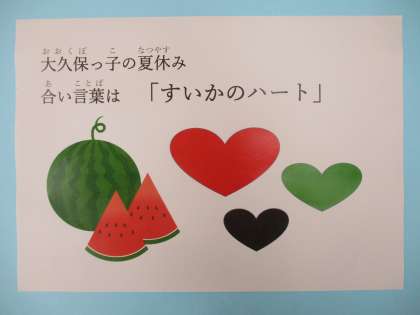 おおくぼ こ なつやす
大久保っ子の夏休み
あ ことば
合い言葉は 「すいかのハート」